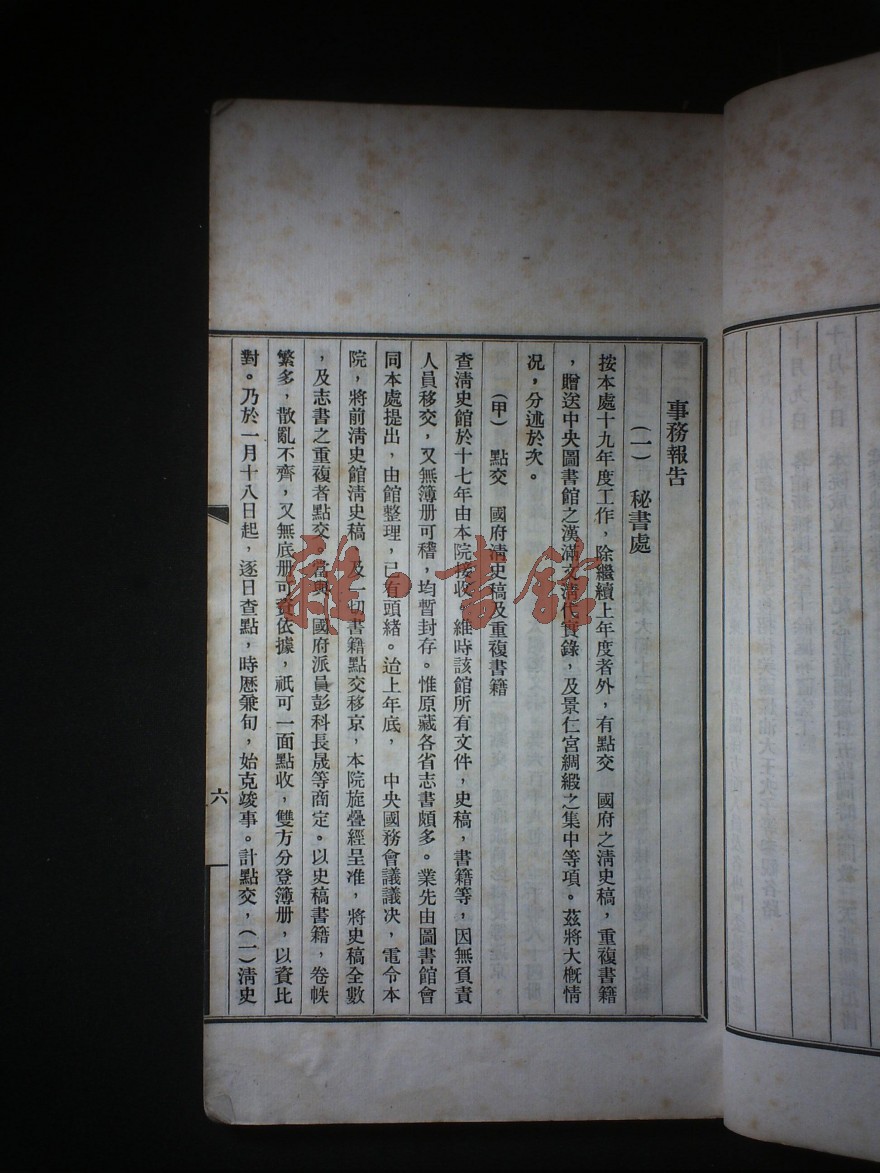 事務報告
（一）　秘書處
按本處十九年度工作，除繼續上年度者外，有點交　國府之清史稿，重複書籍
，贈送中央圖書館之漢滿文清代實錄，及景仁宮綢緞之集中等項。茲將大概情
況，分述於次。
（甲）　點交　國府清史稿及重複書籍
查清史館於十七年由本院接收，維時該館所有文件，史稿，書籍等，因無負責
人員移交，又無簿册可稽，均暫封存。惟原藏各省志書頗多。業先由圖書館會
同本處提出，由館整理，已有頭緒。迨上年底，　中央國務會議議决，電令本
院，將前清史館清史稿，及一切書籍點交移京，本院旋疊經呈准，將史稿全數
，及志書之重複者點交，當與　國府派員彭科長晟等商定。以史稿書籍，卷帙
繁多，散亂不齊，又無底册可資依據，祇可一面點收，雙方分登簿册，以資比
對。乃於一月十八日起，逐日查點，時歷兼旬，始克竣事。計點交，（一）清史
六
雜·書館